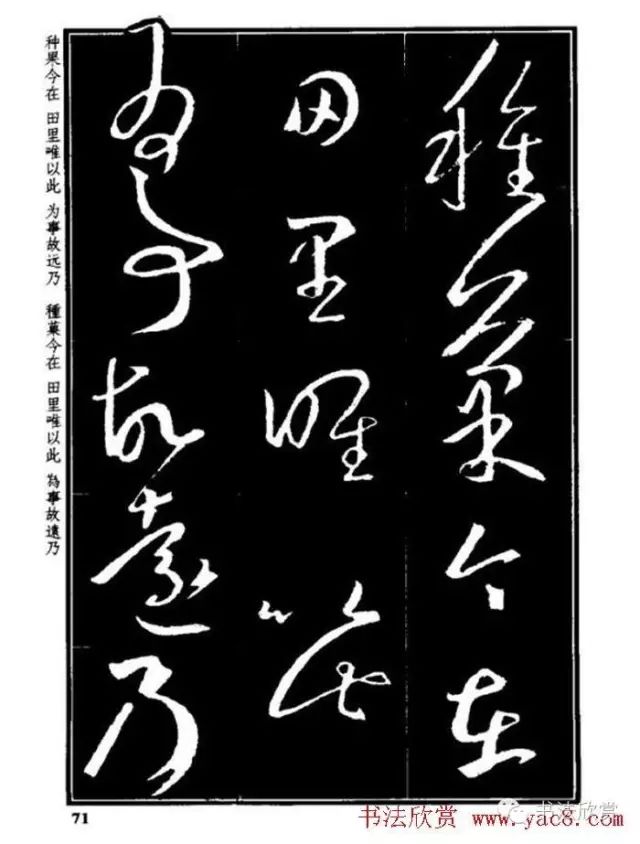 種菓今在
田里唯以此
為事故遠乃
种果今在 田里唯以此 为事故远乃 種菓今在 田里唯以此 為事故遠乃
71
书法欣赏
书法欣赏 www.yac8.com